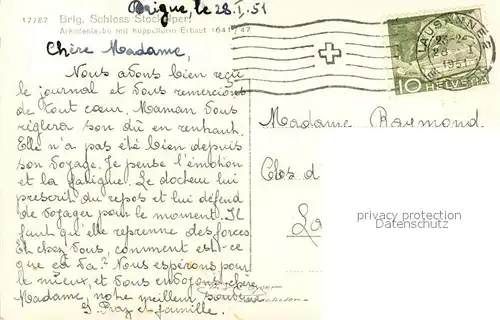 17787 Brig, Schloss Stockalper,
Arkadenlaube mit Kuppelturm Erbaut 1641-47
Brigue, le 28.I.51
Chère Madame,
Nous avons bien reçu
le journal et vous remercions
de tout cœur. Maman vous
règlera son dû en rentrant.
Elle n'a pas été bien depuis
son voyage. Je pense l'émotion
et la fatigue. Le docteur lui
prescrit du repos et lui défend
de voyager pour le moment. Il
faut qu'elle reprenne des forces.
Et chez vous, comment est-ce
que ça va? Nous espérons pour
le mieux, et vous envoyons, chère
Madame, notre meilleur souvenir
Pray et famille.
LAUSANNE 2
28-26
28. I
1951
10 HELVETIA
Madame Raymond
Clos d
La
privacy protection
Datenschutz